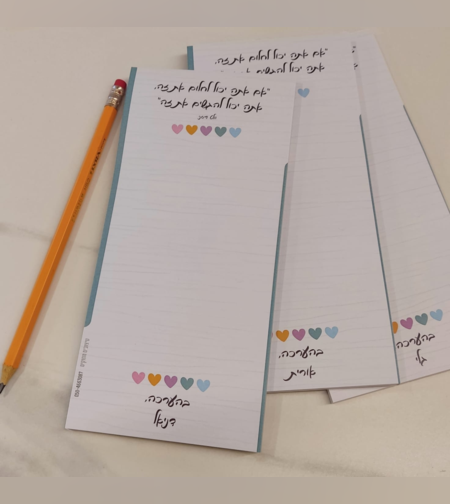 "אם אתה יכול לחלום את זה,
אתה יכול להגשים את זה"
בהערכה,
דניאל
"אם אתה יכול לחלום את זה,
אתה יכול להגשים את זה
בהערכה,
אורית
בהערכה,
גלי